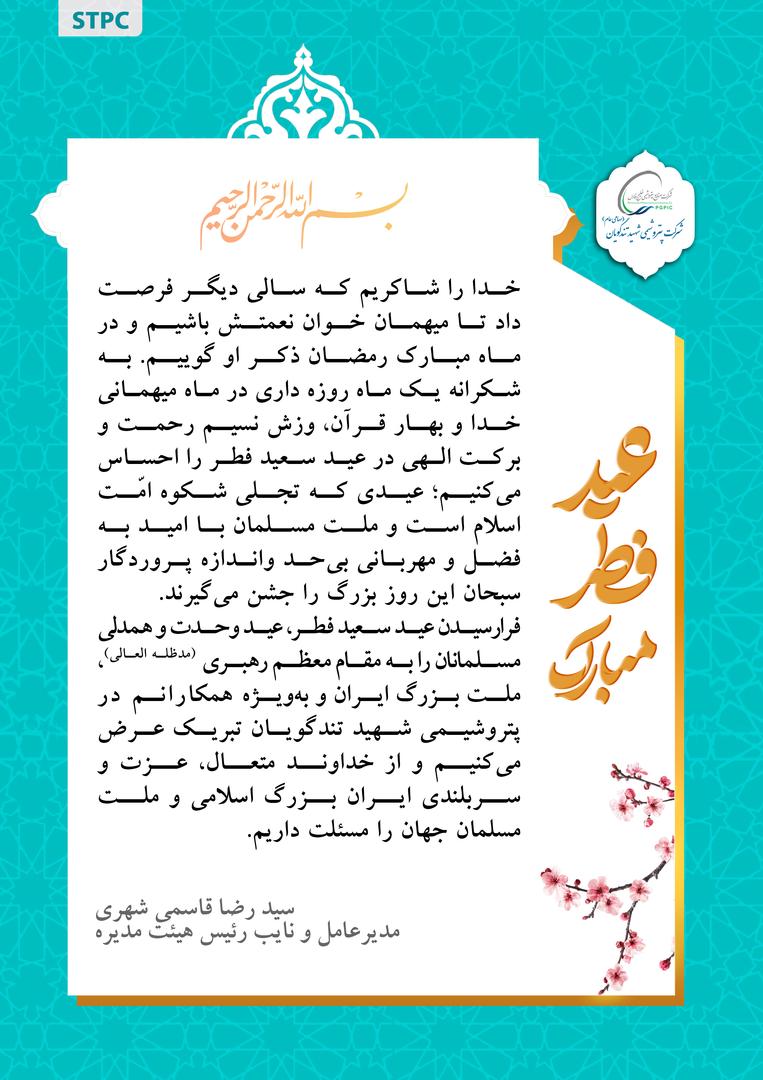 STPC
بسم الله الرحمن الرحیم
شرکت صنایع پتروشیمی خلیج فارس
PGPIC
(سهامی عام)
شرکت پتروشیمی شهید تندگویان
خدا را شاکریم که سالی دیگر فرصت
داد تا میهمان خوان نعمتش باشیم و در
ماه مبارک رمضان ذکر او گوییم. به
شکرانه یک ماه روزه داری در ماه میهمانی
خدا و بهار قرآن، وزش نسیم رحمت و
برکت الهی در عید سعید فطر را احساس
می‌کنیم؛ عیدی که تجلی شکوه امّت
اسلام است و ملت مسلمان با امید به
فضل و مهربانی بی‌حد واندازه پروردگار
سبحان این روز بزرگ را جشن می‌گیرند.
فرارسیدن عید سعید فطر، عید وحدت و همدلی
مسلمانان را به مقام معظم رهبری (مدظله العالی)،
ملت بزرگ ایران و به‌ویژه همکارانم در
پتروشیمی شهید تندگویان تبریک عرض
می‌کنیم و از خداوند متعال، عزت و
سربلندی ایران بزرگ اسلامی و ملت
مسلمان جهان را مسئلت داریم.
عید
فطر
مبارک
سید رضا قاسمی شهری
مدیرعامل و نایب رئیس هیئت مدیره